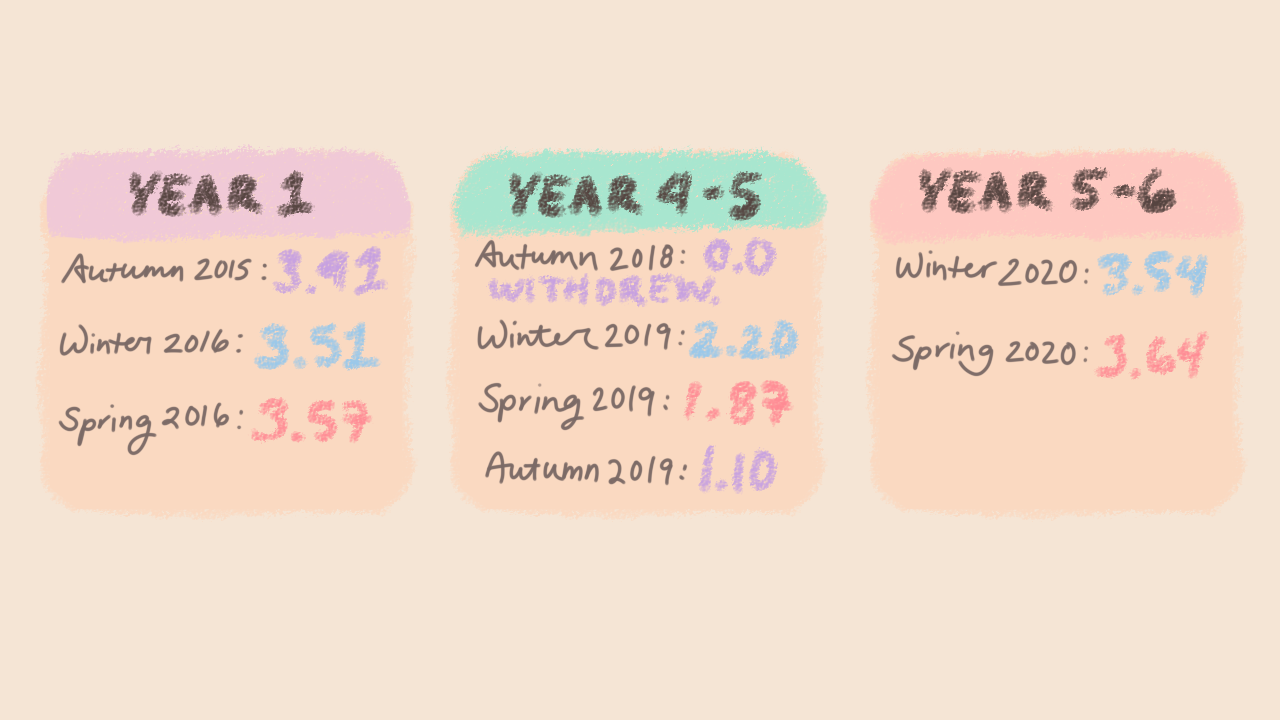 YEAR 1
Autumn 2015: 3.91
Winter 2016: 3.51
Spring 2016: 3.57
YEAR 4-5
Autumn 2018: 0.0
WITHDREW.
Winter 2019: 2.20
Spring 2019: 1.87
Autumn 2019: 1.10
YEAR 5-6
Winter 2020: 3.54
Spring 2020: 3.64